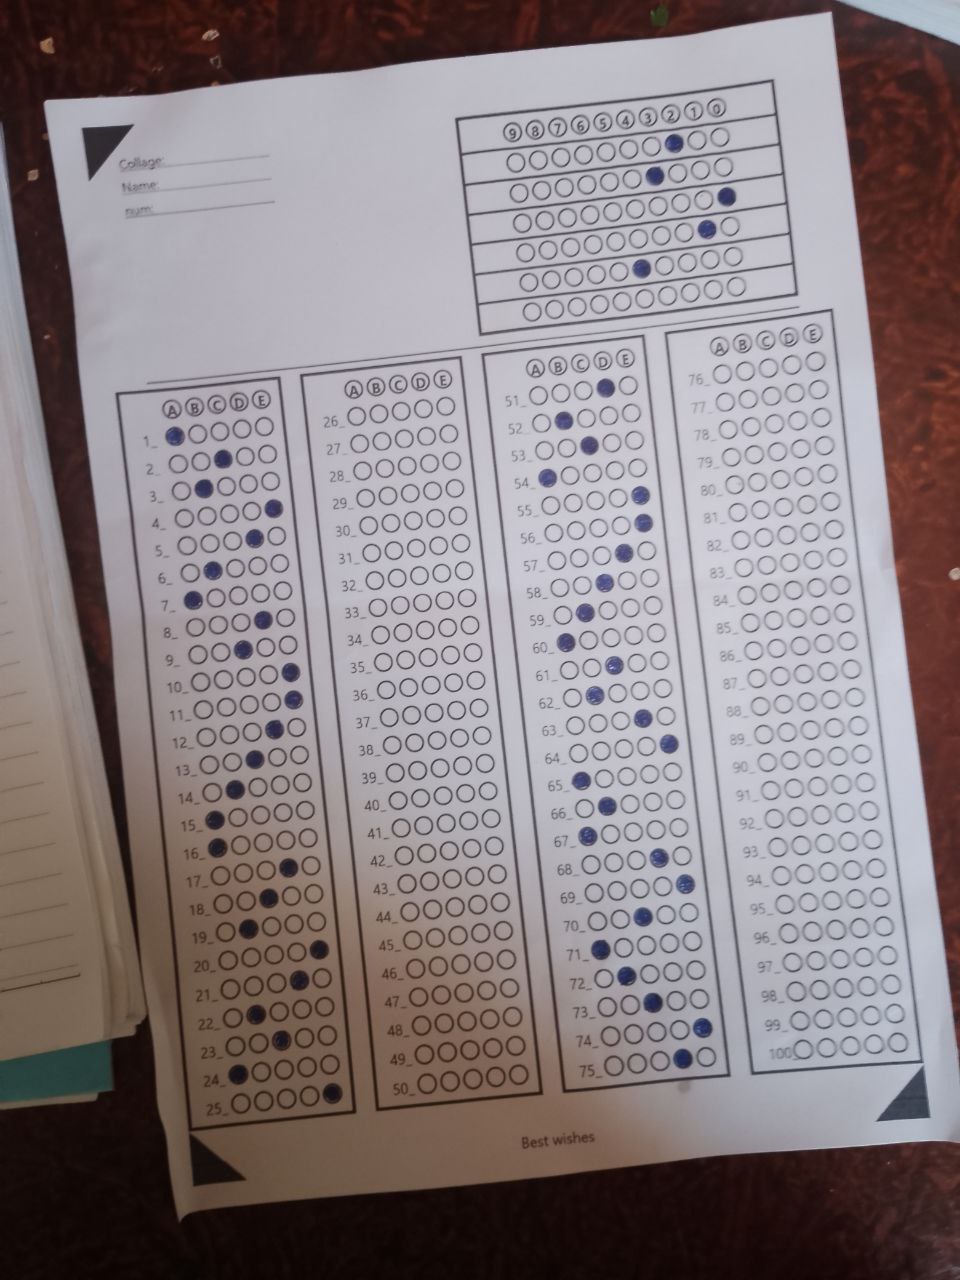 Collage:
Name:
num:
9 8 7 6 5 4 3 2 1 0
A B C D E
1_
2_
3_
4_
5_
6_
7_
8_
9_
10_
11_
12_
13_
14_
15_
16_
17_
18_
19_
20_
21_
22_
23_
24_
25_
A B C D E
26_
27_
28_
29_
30_
31_
32_
33_
34_
35_
36_
37_
38_
39_
40_
41_
42_
43_
44_
45_
46_
47_
48_
49_
50_
A B C D E
51_
52_
53_
54_
55_
56_
57_
58_
59_
60_
61_
62_
63_
64_
65_
66_
67_
68_
69_
70_
71_
72_
73_
74_
75_
A B C D E
76_
77_
78_
79_
80_
81_
82_
83_
84_
85_
86_
87_
88_
89_
90_
91_
92_
93_
94_
95_
96_
97_
98_
99_
100
Best wishes